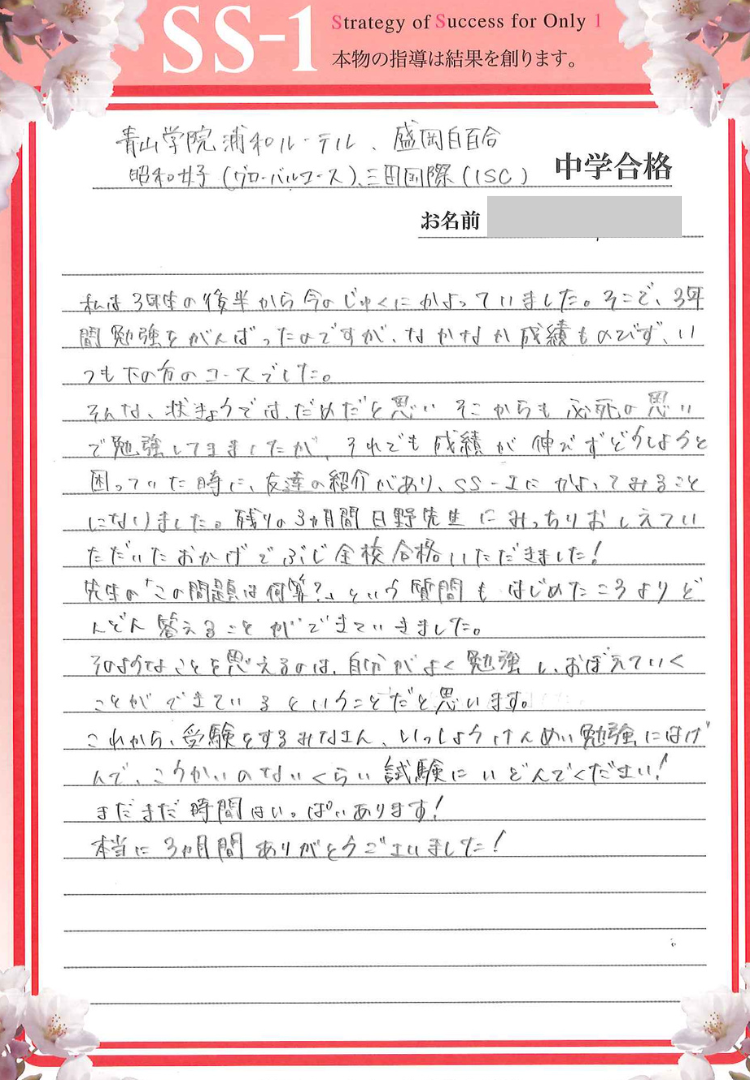 SS-1
Strategy of Success for Only 1
本物の指導は結果を創ります。
青山学院浦和ルーテル、盛岡白百合
昭和女子(グローバルコース)、三田国際(ISC)
中学合格
お名前
私は3年生の後半から今のじゅくにかよっていました。そこで、3年
間勉強をがんばったのですが、なかなか成績ものびず、い
つも下の方のコースでした。
そんな、状きょうでは、だめだと思いそこからも必死の思い
で勉強してきましたが、それでも成績が伸びずどうしようと
困っていた時に、友達の紹介があり、SS-1にかよってみること
になりました。残りの3カ月間日野先生にみっちりおしえてい
ただいたおかげでぶじ全校合格いただきました!
先生の「この問題は何算?」という質問もはじめたころよりど
んどん答えることができていきました。
そのようなことを思えるのは、自分がよく勉強し、おぼえていく
ことができているということだと思います。
これから、受験をするみなさん、いっしょうけんめい勉強にはげ
んで、こうかいのないくらい試験にいどんでください!
まだまだ時間はいっぱいあります!
本当に3カ月間ありがとうございました!